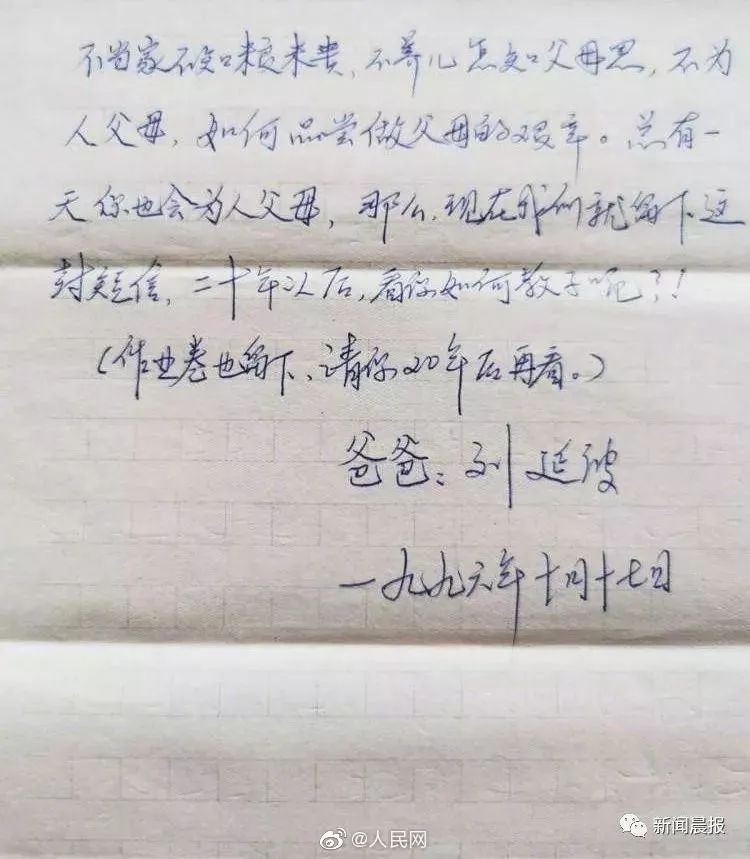 不当家不知柴米贵，不养儿怎知父母恩，不为
人父母，如何品尝做父母的艰辛。总有一
天你也会为人父母，那么，现在我们就留下这
封短信，二十年以后，看你如何教子呢？！
（作业卷也留下、请你20年后再看。）
爸爸：刘延波
一九九六年十月十七日
@人民网
新闻晨报